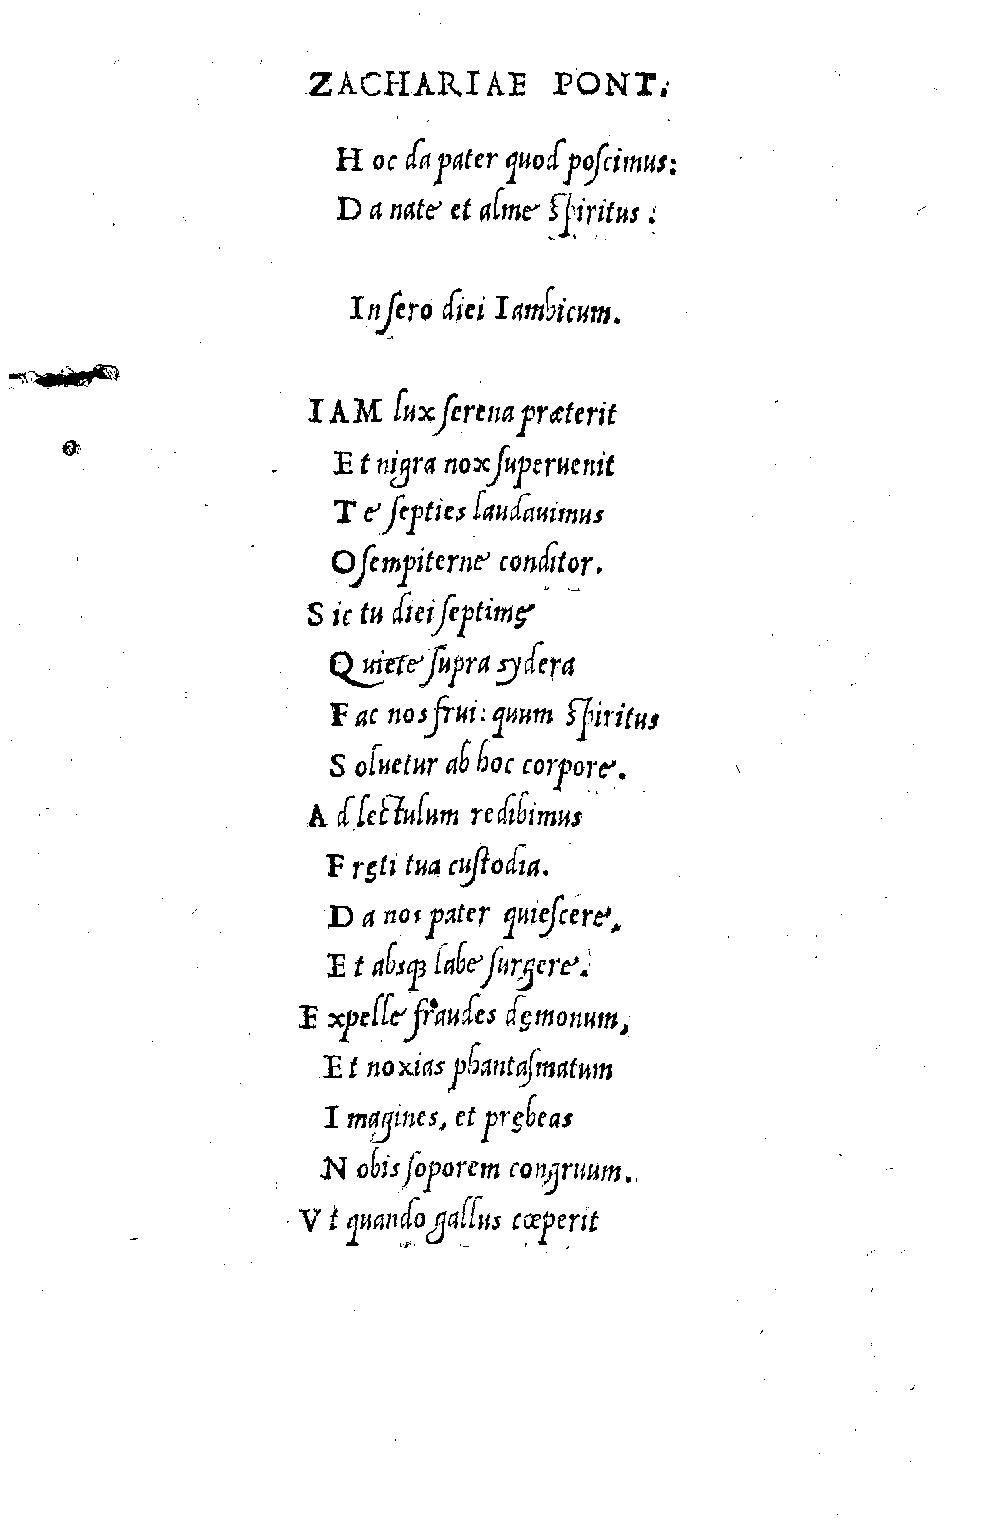 ZACHARIAE PONT.
Hoc da pater quod poſcimus:
Da nate et alme ſpiritus.
In ſero diei Iambicum.
IAM lux ſerena præterit
Et nigra nox ſuperuenit
Te ſepties laudauimus
O ſempiterne conditor.
Sic tu diei ſeptimę
Quiete ſupra sydera
Fac nos frui: quum ſpiritus
Soluetur ab hoc corpore.
Ad lectulum redibimus
Fręti tua cuſtodia.
Da nos pater quieſcere,
Et absq; labe ſurgere.
Expelle fraudes dęmonum,
Et noxias phantaſmatum
Imagines, et prębeas
Nobis ſoporem congruum.
Vt quando gallus cœperit